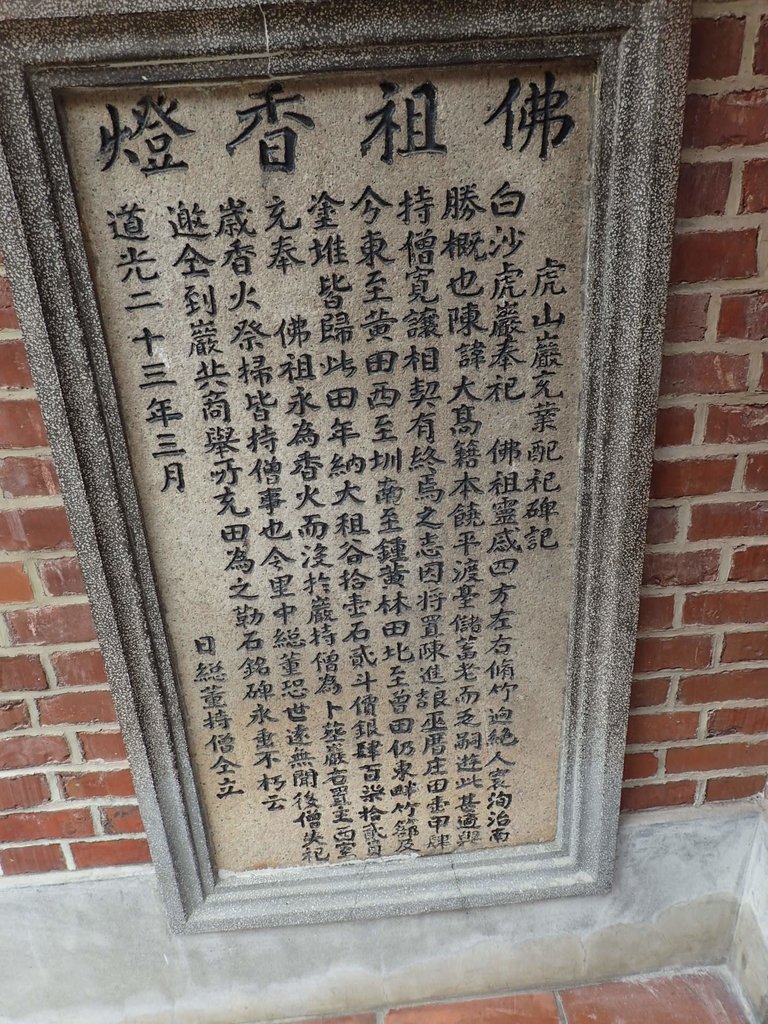 佛祖香燈
虎山巖充業配祀碑記
白沙虎巖奉祀　佛祖靈感四方左右脩竹迥絕人寰洵治南
勝概也陳諱大高籍本饒平渡臺儲蓄老而乏嗣遊此甚適與
持僧寬讓相契有終焉之志因將置陳進諒巫厝庄田壹甲肆
今東至黃田西至圳南至鍾黃林田北至曾田仍東畔竹蔀及
塗堆皆歸此田年納大租谷拾壹石貳斗價銀肆百柒拾貳員
充奉　佛祖永為香火而沒於巖持僧為卜葬巖右置主西室
歲香火祭掃皆持僧事也今里中総董恐世遠無聞後僧失祀
邀仝到巖共商舉所充田為之勒石銘碑永垂不朽云
道光二十三年三月　日総董持僧仝立